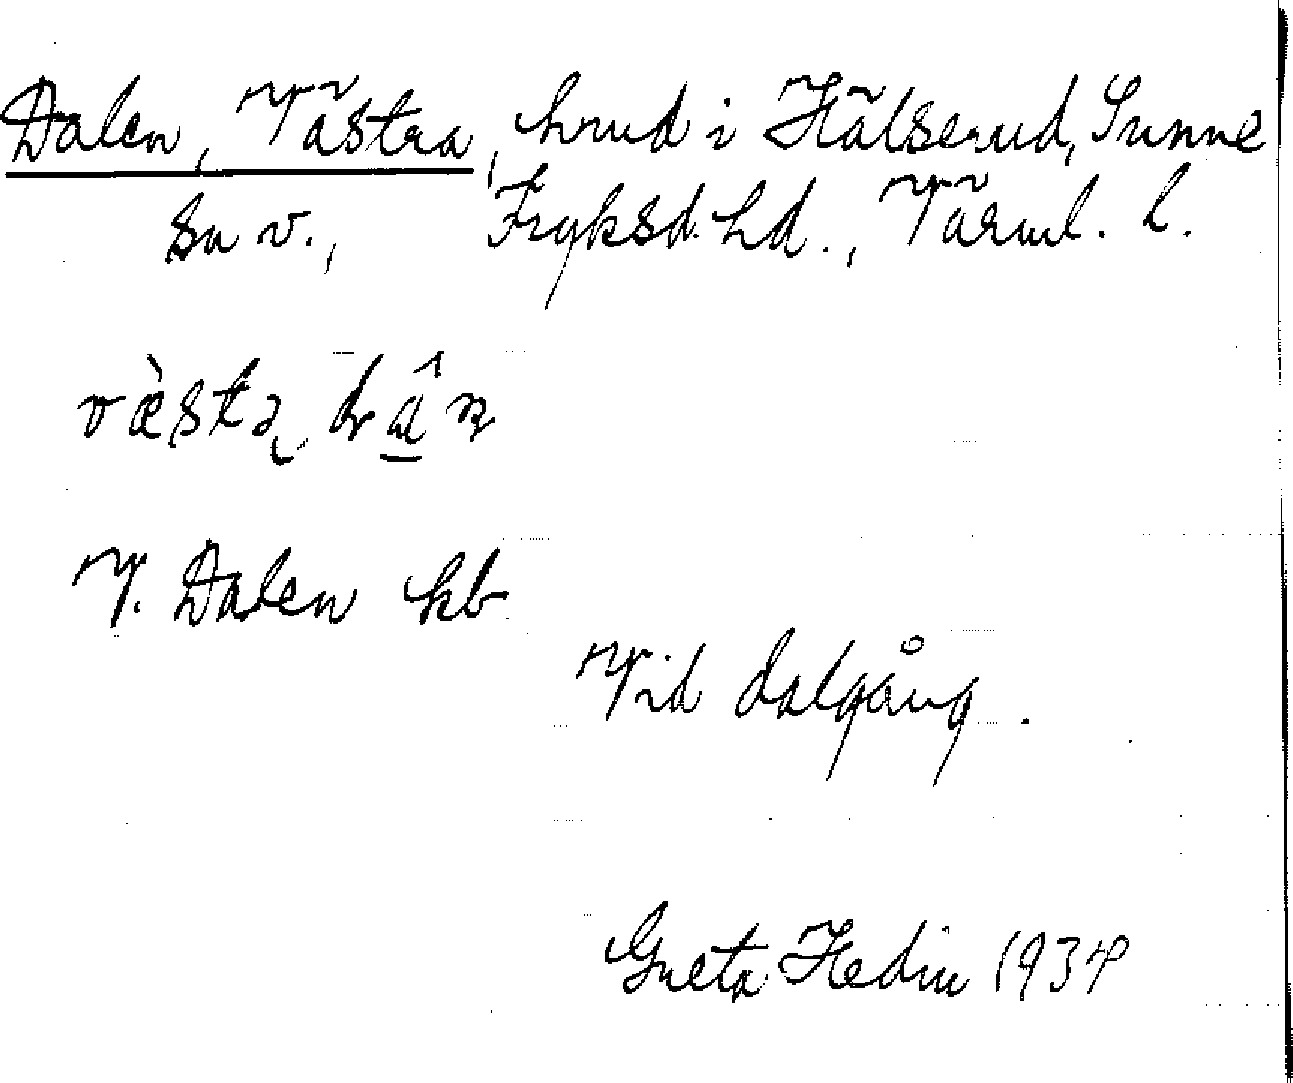 Dalen, Västra, hmd i Hälserud, Sunne
sn v., Fryksd. hd., Värml. l.
V. Dalen kb
Vid dalgång.
Greta Hedin 1934